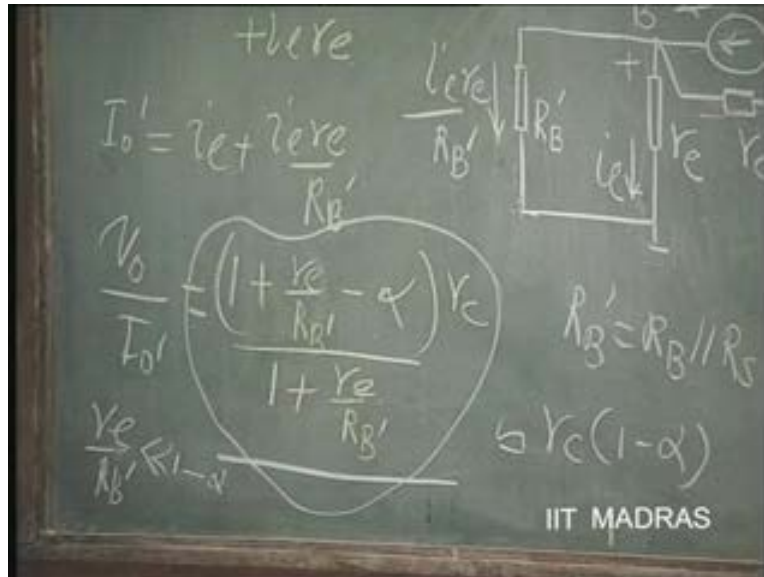 +ie re
I₀' = ie + ie re / R_B'
V₀ / I₀' = (1 + re / R_B' - α) rc / (1 + re / R_B')
re / R_B' ≪ 1-α
ie re / R_B'
R_B'
ie
re
+
R_B' = R_B // R_s
rc (1-α)
IIT MADRAS